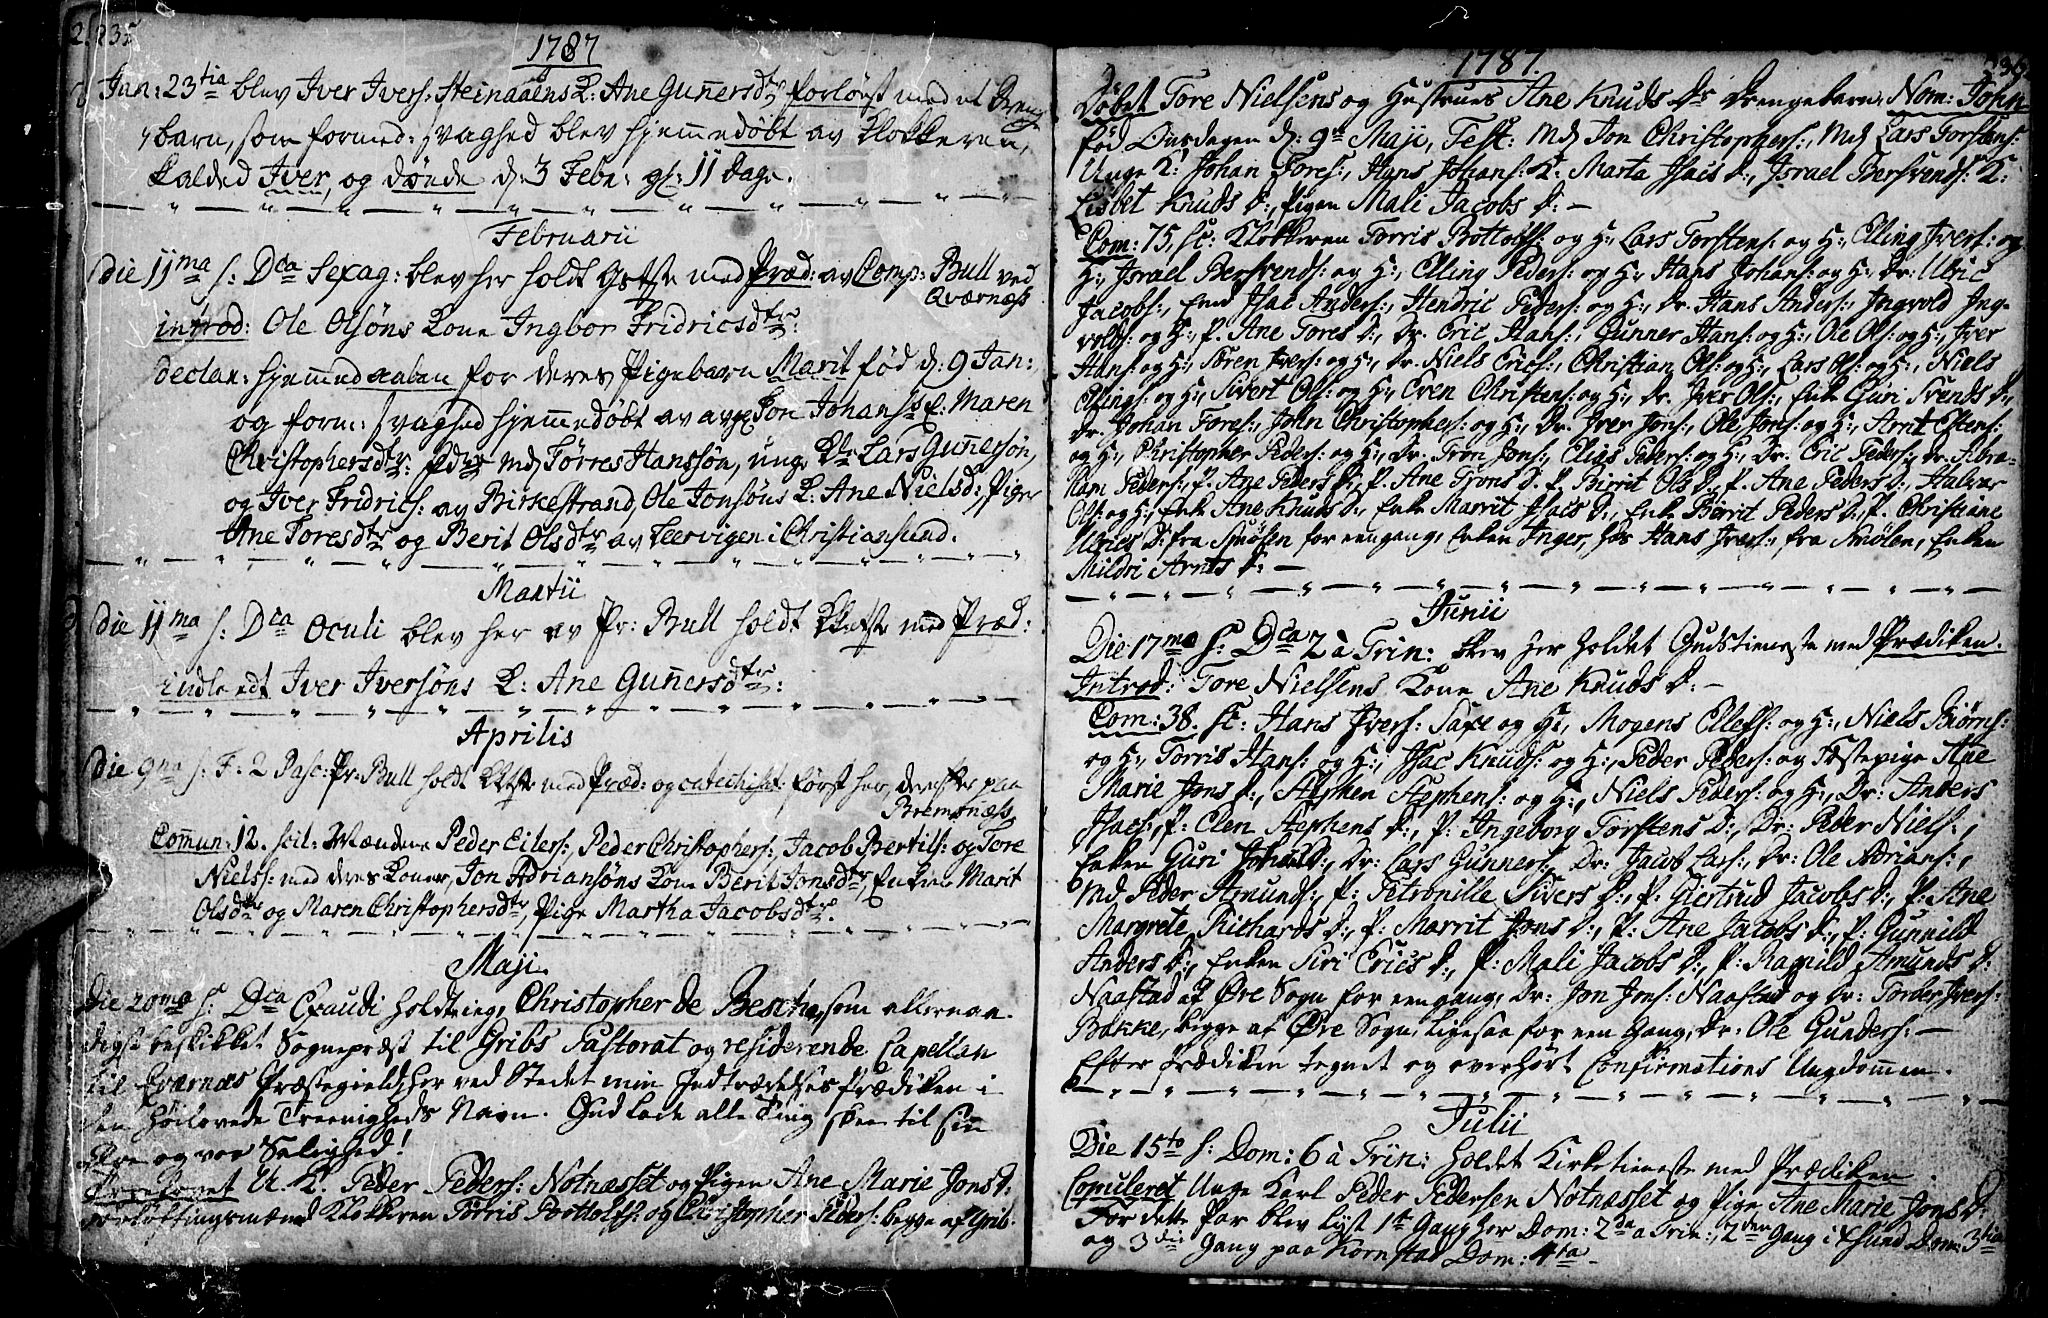 235
1787
Jan: 23tia blev Iver Ivers: Steinaaens K: Ane Guñersdtr forløst med et Drenge
barn, som formed: svaghed blev hjem̃edøbt av Klokkeren,
kalded Iver, og døde d: 3 Febr: gl: 11 dage.
Februarii
Die 11ma s: Dca Sexag: blev her holdt Gstste med Præd: av Comp: Bull ved
Qværnæss
introd: Ole Olsøns Kone Ingbor Fridricsdtr:
declar: hjem̃edaaben for deres Pigebarn Marit fød d: 9 Jan:,
og form: svaghed hjem̃edøbt av Jon Johans: F: Maren
Christophersdtr: Md Tørres Hanssøn, unge Kle Lars Guñersøn,
og Iver Fridrics: av Birkestrand, Ole Jonsøns K: Ane Nielsd: Piger
Ane Toresdtr og Berit Olsdtr av Leervigen i Christiansund.
Martii
Die 11ma s: Dca Oculi blev her av Pr: Bull holdt Gstste med Præd:
indleedt Iver Iversøns K: Ane Guñersdtr:
Aprilis
Die 9na s: F: 2 Pasc: Pr: Bull holdt Gstste med Præd: og catechis: først her, derefter paa
Bremsnæss
Com̃un: 12. scil: Mændene Peder Eilers:, Peder Christophers:, Jacob Bertils: og Tore
Niels: med deres Koner, Jon Adriansøns Kone Berit Jonsdtr, Enkene Marit
Olsdtr og Maren Christophersdtr, Pige Martha Jacobsdtr.
Maji
Die 20ma s: Dca Exaudi holdt jeg, Christopher de Besche, som allernaa-
digst beskikket Sognepræst til Gribs Pastorat og residerende Capellan
til Qværnæs Præstegield, her ved Stedet min Indtrædelses Prædiken i
den Høilovede Treenigheds Navn. Gud lade alle Ting skee til sin
Ære og vor Salighed!
Trolovet U. K. Peder Peders: Notnæsset og Pigen Ane Marie Jons D:
Forlovtningsmænd Klokkeren Torris Bottolfs: og Christopher Peders: begge af Grib.
1787.
Døbet Tore Nielsens og Hustrues Ane Knuds Dr Drengebarn, Nom: John
fød Onsdagen d: 9de Maji, Test: Md Jon Christophers:, Md Lars Torstens:
Unge K: Johan Tores:, Hans Johans: K: Marta Isacs D:, Israel Bersvends: K:
Lisbet Knuds D:, Pigen Mali Jacobs D: —
Com: 75, sc: Klokkeren Torris Bottolfs: og H:, Lars Torstens: og H:, Elling Ivers: og
H:, Israel Bersvends: og H:, Elling Peders: og H:, Hans Johans: og H:, Dr: Ulric
Jacobs:, Enk Isac Anders:, Hendric Peders: og H:, Dr. Hans Anders:, Ingvold Ing-
volds: og H:, P. Ane Tores D:, Dr. Eric Hans:, Gunner Hans: og H:, Ole Ols: og H:, Iver
Hans: og H:, Sören Ivers: og H:, Dr. Niels Erics:, Christian Ols: og H:, Lars Ols: og H:, Niels
Ellings: og H:, Sivert Ols: og H:, Even Christens: og H:, Dr. Iver Ols:, Enke Guri Svends D:,
Dr. Johan Tores:, John Christophers: og H:, Dr. Iver Jons:, Ole Jons: og H:, Arnt Estens:
og H:, Christopher Peders: og H:, Dr. Tron Jons:, Elias Peders: og H:, Dr. Eric Peders:, Dr. Abra-
ham Peders:, P. Ane Peders D:, P. Ane Trons D: P. Birrit Ols D: P. Ane Peders D:, Halvar
Ols: og H:, Enke Ane Knuds D:, Enke Marrit Isacs D:, Enke Birrit Peders D:, P. Christiane
Ulrics D: fra Smölen for eengang, Enken Inger, hos Hans Ivers:, fra Smölen, Enken
Mildri Arnts D: —
Junii
Die 17ma s: Dca 2 à Trin: blev her holdet Gudstieneste med Prædiken.
Introd: Tore Nielsens Kone Ane Knuds D: —
Com: 38. sc: Hans Ivers: Saxe og H:, Mogens Ellefs: og H:, Niels Biörns:
og H:, Torris Hans: og H:, Isac Knuds: og H:, Peder Peders: og Fæstepige Ane
Marie Jons D:, Stephen Stephens: og H:, Niels Peders: og H:, Dr: Anders
Isacs:, P: Elen Stephens D:, P: Ingeborg Torstens D:, Dr: Peder Niels:,
Enken Guri Johns D:, Dr: Lars Gunners:, Dr: Jacob Lars:, Dr: Ole Adrians:,
Md. Peder Amunds:, P: Petronille Sivers D:, P: Giertrud Jacobs D:, P: Ane
Margrete Richards D:, P: Marrit Jons D:, P: Ane Jacobs D:, P: Gunnild
Anders D:, Enken Siri Erics D:, P: Mali Jacobs D:, P: Ragnild Amunds D:
Naastad af Øre Sogn for eengang, Dr: Jon Jons: Naastad og Dr: Tarder Ivers:
Bakke, begge af Øre Sogn, ligesaa for een Gang, Dr: Ole Gunders: —
Efter Prædiken tegnet og overhört Confirmations Ungdommen.
Julii
Die 15to s: Dom: 6 à Trin: holdet Kirketieneste med Prædiken.
Copuleret Unge Karl Peder Pedersen Notnæsset og Pige Ane Marie Jons D:
For dette Par blev lyst 1te Gang her Dom: 2da a Trin:, 2den Gang i Xsund Dom: 3tia
og 3die Gang paa Kornstad Dom: 4ta. —